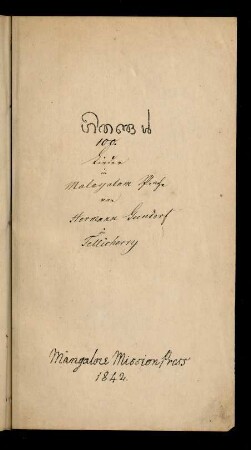 ഗീതങ്ങൾ
100.
Lieder
in
Malayalam Sprache
von
Hermann Gundert
in
Tellicherry
Mangalore Mission Press
1842.